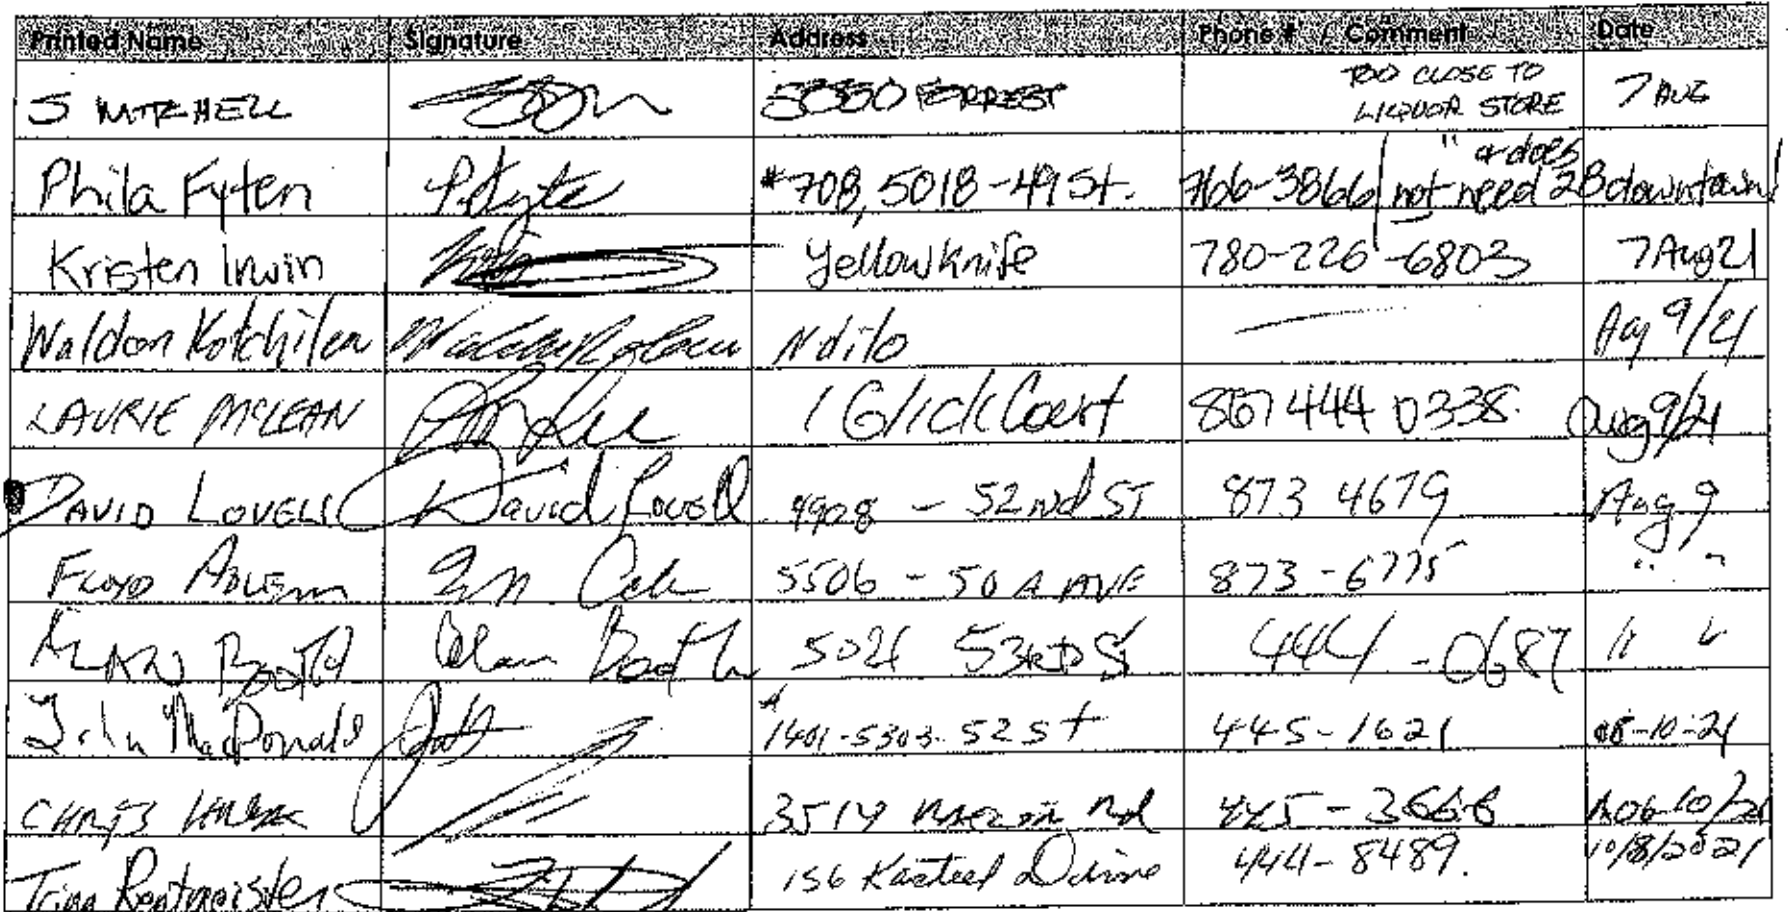 Printed Name Signature Address Phone # / Comment Date
S MITCHELL 5050 FORREST TOO CLOSE TO LIQUOR STORE 7 AUG
Phila Fyten #708, 5018-49 St. 766-3866 / " or does not need 2B downtown!
Kristen Irwin Yellowknife 780-226-6803 7 Aug 21
Waldon Kotchilea Ndilo — Aug 9/21
LAURIE MCLEAN 1 Glick Court 867 444 0338 Aug 9/21
DAVID LOVELL David Lovell 4908 - 52nd ST 873 4679 Aug 9
FLOYD 5506 - 50 A AVE 873-6775 " "
ALAN BOOTH Alan Booth 5021 53RD St 444-0687 " "
John MacDonald 1401-5303-52 St 445-1621 08-10-21
CHRIS 3514 Rd 445-3666 AUG 10/21
Trina Rentmeister 156 Kasteel Drive 444-8489. 10/8/2021